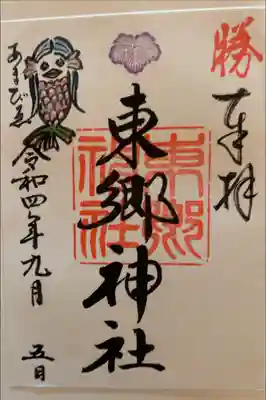 勝
奉拝
東郷神社
東郷神社
令和四年九月
五日
あまびゑ